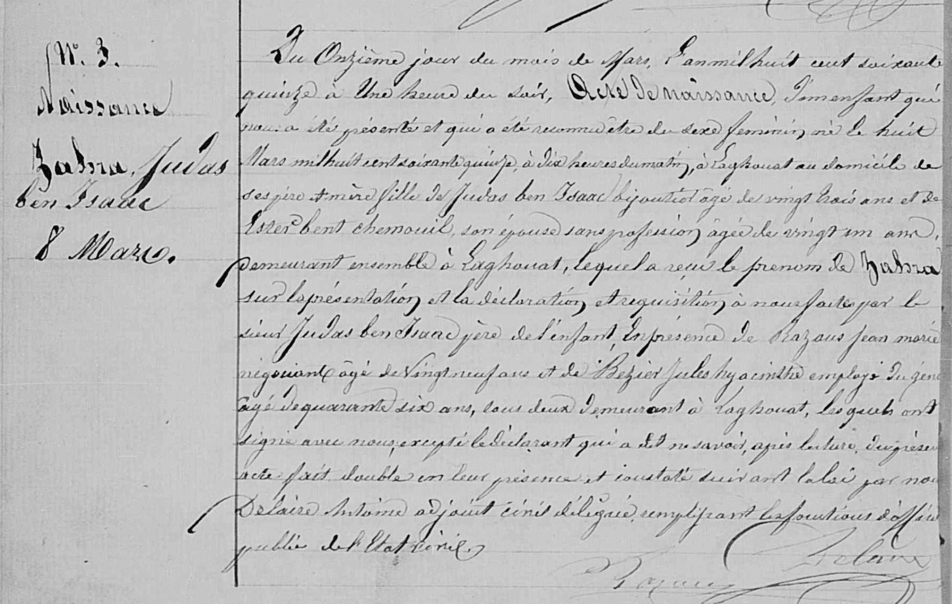 N°. 3.
Naissance
Zahra, Judas
ben Isaac
8 Mars.
Du Onzième jour du mois de Mars, l'an mil huit cent soixante
quinze à Une heure du soir, Acte de naissance, d'un enfant qui
nous a été présenté et qui a été reconnu être du sexe féminin, né le huit
Mars mil huit cent soixante quinze, à dix heures du matin, à Laghouat au domicile de
ses père et mère fille de Judas ben Isaac bijoutier âgé de vingt trois ans et de
Ester bent Chemouil, son épouse sans profession, âgée de vingt un ans,
demeurant ensemble à Laghouat, lequel a reçu le prenom de Zahra
sur la présentation et la déclaration et requisition à nous faite par le
sieur Judas ben Isaac père de l'enfant, En présence de Razous Jean marie
négociant âgé de Vingt neuf ans et de Bezier Jules hyacinthe employé du géni
âgé de quarante six ans, tous deux demeurant à Laghouat, lesquels ont
signé avec nous, excepté le déclarant qui a dit ne savoir, après lecture du présent
acte fait double en leur présence et constaté suivant la loi par nous
Delaire Antoine adjoint civil délégué, remplissant les fonctions d'officier
public de l'Etat civil,
Razous
Delaire